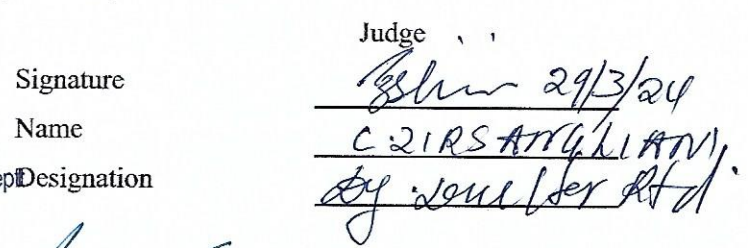 Judge
Signature 29/3/24
Name C ZIRSANGLIANI,
Designation Dy. Rtd.